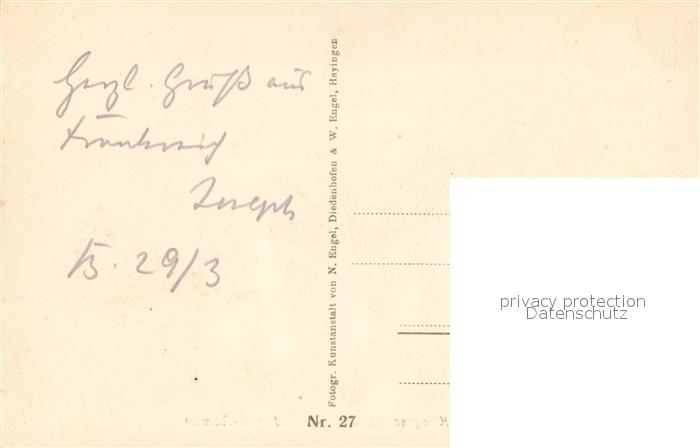 Herzl. Gruß aus
Frankreich
Joseph
29/3
Fotogr. Kunstanstalt von N. Engel, Diedenhofen & W. Engel, Hayingen
Nr. 27
privacy protection
Datenschutz